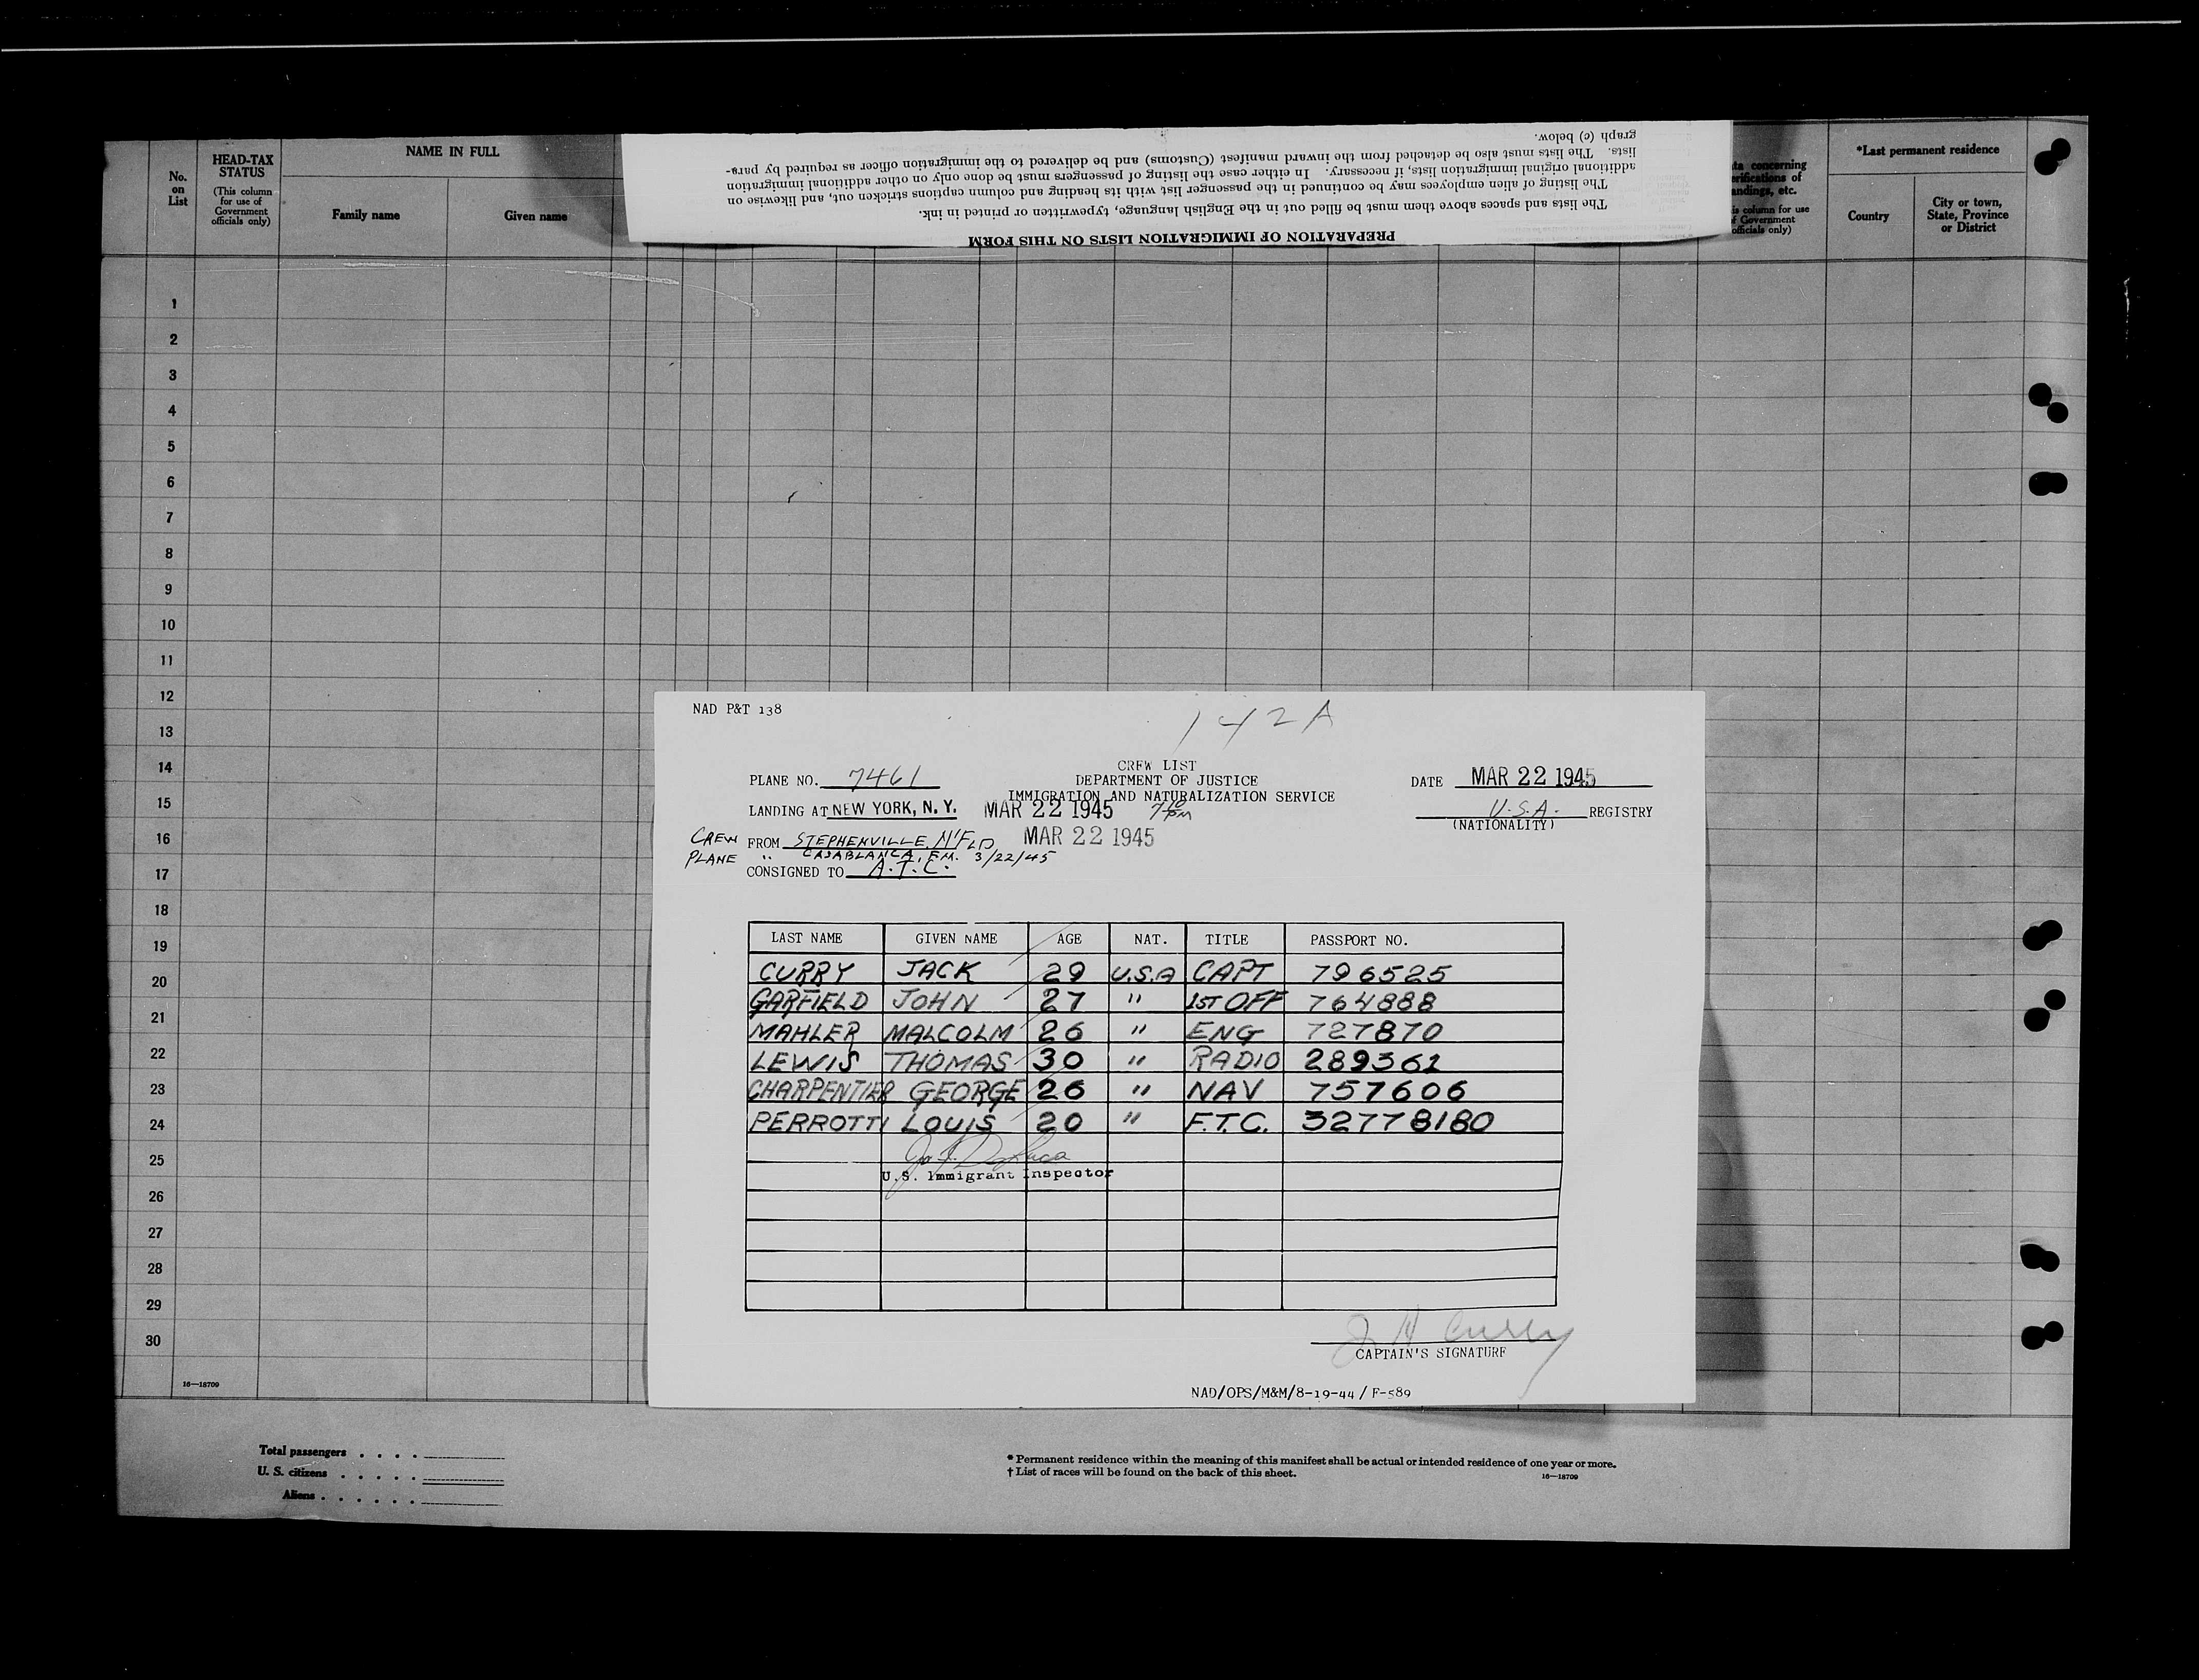 PREPARATION OF IMMIGRATION LISTS ON THIS FORM
The lists and spaces above them must be filled out in the English language, typewritten or printed in ink.
The listing of alien employees may be continued in the passenger list with its heading and column captions stricken out, and likewise on
additional original immigration lists, if necessary. In either case the listing of passengers must be done only on other additional immigration
lists. The lists must also be detached from the inward manifest (Customs) and be delivered to the immigration officer as required by para-
graph (c) below.
No. on List
HEAD-TAX STATUS
(This column for use of Government officials only)
NAME IN FULL
Family name
Given name
concerning
of
etc.
column for use
Government
officials only)
*Last permanent residence
Country
City or town, State, Province or District
1
2
3
4
5
6
7
8
9
10
11
12
13
14
15
16
17
18
19
20
21
22
23
24
25
26
27
28
29
30
16—18709
NAD P&T 138
142A
CREW LIST
DEPARTMENT OF JUSTICE
IMMIGRATION AND NATURALIZATION SERVICE
PLANE NO. 7461
DATE MAR 22 1945
LANDING AT NEW YORK, N. Y. MAR 22 1945 7 10 PM
U.S.A. REGISTRY
(NATIONALITY)
CREW FROM STEPHENVILLE, N'FLD MAR 22 1945
PLANE " CASABLANCA, F.M. 3/22/45
CONSIGNED TO A.T.C.
LAST NAME GIVEN NAME AGE NAT. TITLE PASSPORT NO.
CURRY JACK 29 U.S.A CAPT 796525
GARFIELD JOHN 27 " 1ST OFF 764888
MAHLER MALCOLM 26 " ENG 727870
LEWIS THOMAS 30 " RADIO 289361
CHARPENTIER GEORGE 26 " NAV 757606
PERROTTI LOUIS 20 " F.T.C. 32778180
U.S. Immigrant Inspector
J H Curry
CAPTAIN'S SIGNATURE
NAD/OPS/M&M/8-19-44/F-589
Total passengers . . . .
U. S. citizens . . . . .
Aliens . . . . . .
* Permanent residence within the meaning of this manifest shall be actual or intended residence of one year or more.
† List of races will be found on the back of this sheet.
16—18709